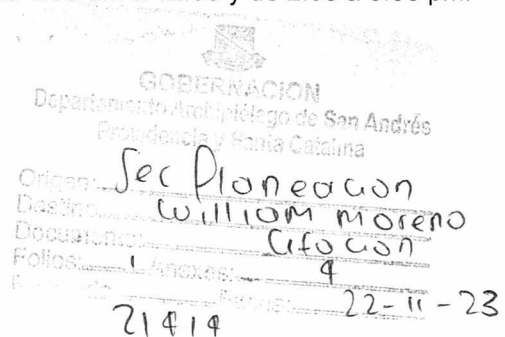 y de 2:00 a 5:00 pm.
GOBERNACION
Departamento Archipiélago de San Andrés
Providencia y Santa Catalina
Origen: Sec Planeacion
Destino: William Moreno
Documento: Citacion
Folios: 1 Anexos: 4
22-11-23
21414